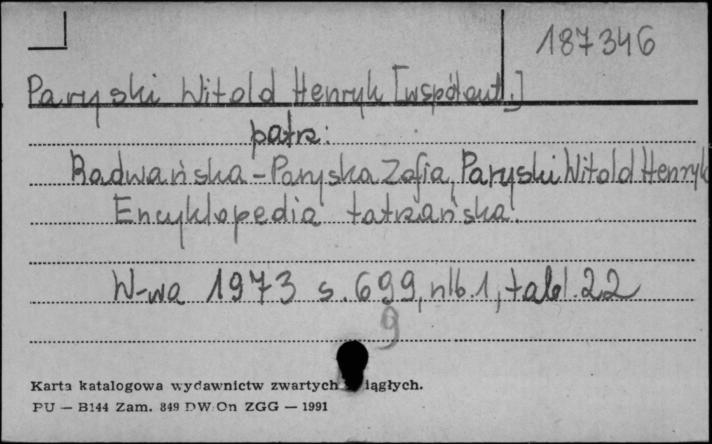 187346
Paryski Witold Henryk [współaut.]
patrz:
Radwańska-Paryska Zofia, Paryski Witold Henryk
Encyklopedia tatrzańska.
W-wa 1973 s. 699, nlb. 1, tabl. 22
9
Karta katalogowa wydawnictw zwartych iągłych.
PU — B144 Zam. 849 DW/On ZGG — 1991